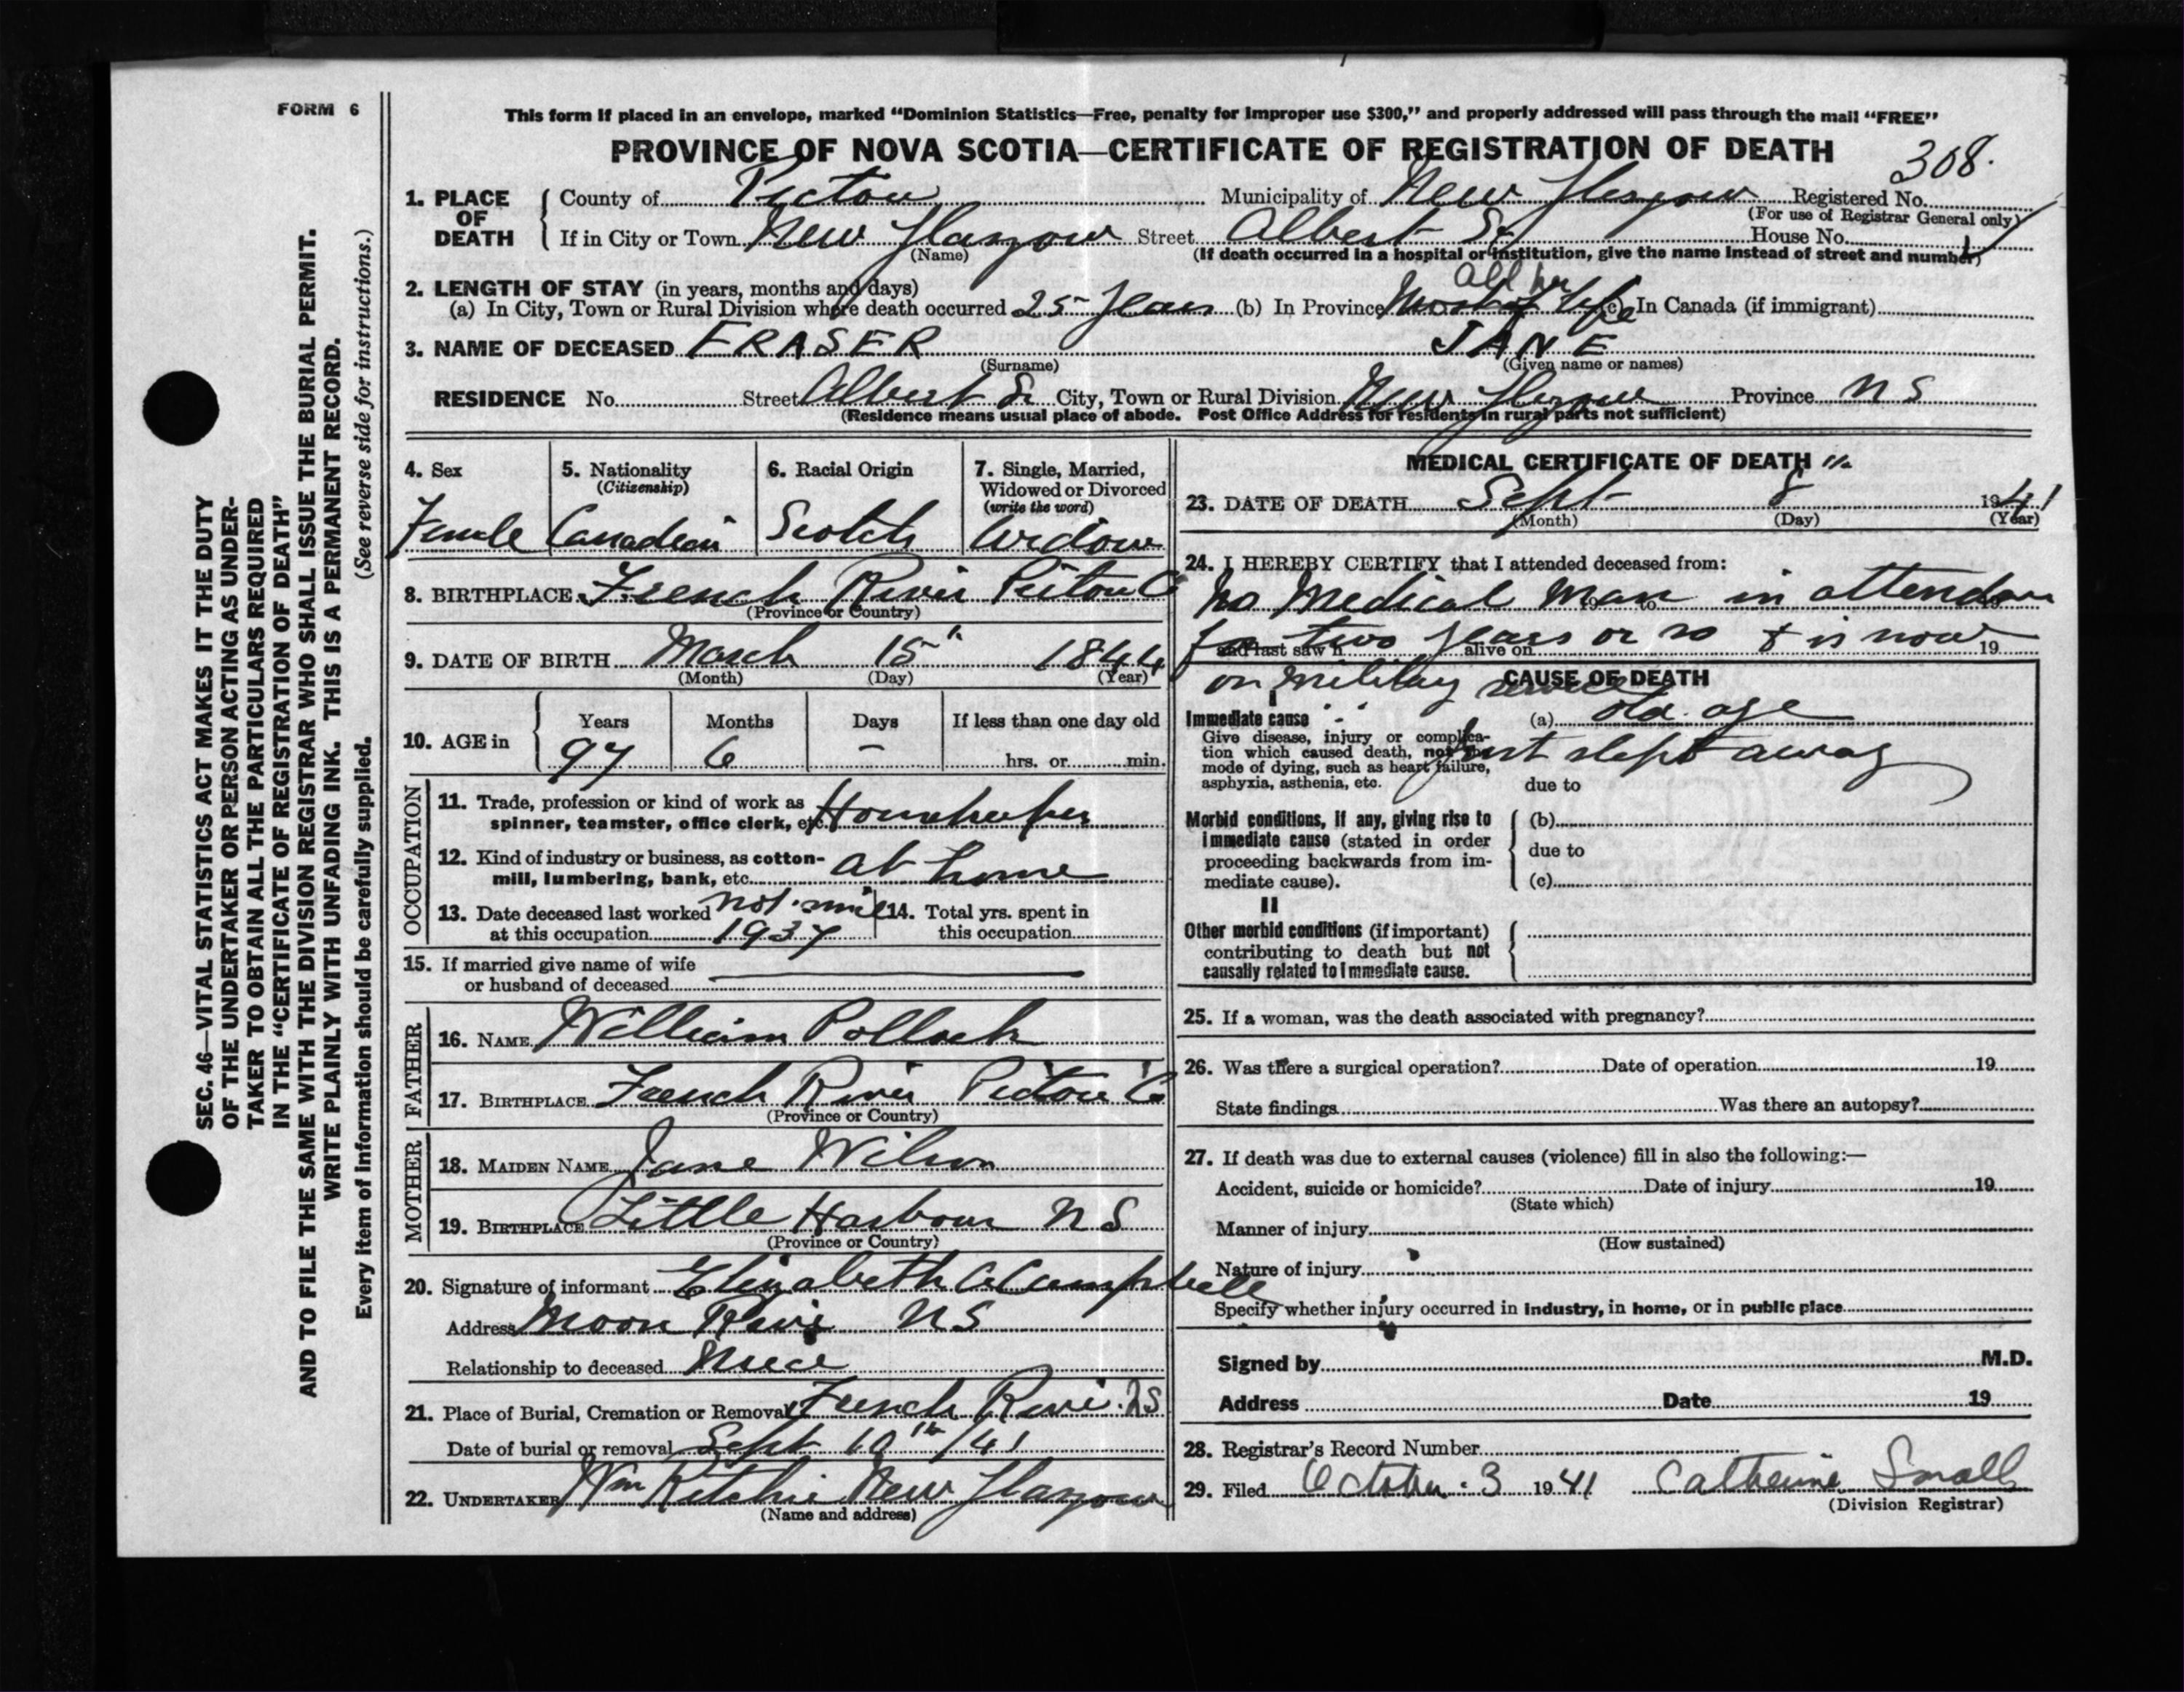 FORM 6
This form if placed in an envelope, marked "Dominion Statistics—Free, penalty for improper use $300," and properly addressed will pass through the mail "FREE"
PROVINCE OF NOVA SCOTIA—CERTIFICATE OF REGISTRATION OF DEATH
308.
1. PLACE OF DEATH County of Pictou Municipality of New Glasgow Registered No.
(For use of Registrar General only)
If in City or Town New Glasgow Street Albert St House No.
(Name) (If death occurred in a hospital or institution, give the name instead of street and number)
2. LENGTH OF STAY (in years, months and days)
All her
(a) In City, Town or Rural Division where death occurred 25 years (b) In Province Most of Life (c) In Canada (if immigrant)
3. NAME OF DECEASED FRASER JANE
(Surname) (Given name or names)
RESIDENCE No. Street Albert St City, Town or Rural Division New Glasgow Province N S
(Residence means usual place of abode. Post Office Address for residents in rural parts not sufficient)
4. Sex 5. Nationality 6. Racial Origin 7. Single, Married,
(Citizenship) Widowed or Divorced
(write the word)
Female Canadian Scotch Widow
8. BIRTHPLACE French River Pictou Co
(Province or Country)
9. DATE OF BIRTH March 15" 1844
(Month) (Day) (Year)
Years Months Days If less than one day old
10. AGE in 97 6 – hrs. or min.
OCCUPATION
11. Trade, profession or kind of work as
spinner, teamster, office clerk, etc. Housekeeper
12. Kind of industry or business, as cotton-
mill, lumbering, bank, etc. at home
13. Date deceased last worked not since 14. Total yrs. spent in
at this occupation 1937 this occupation
15. If married give name of wife
or husband of deceased
FATHER
16. NAME William Pollock
17. BIRTHPLACE French River Pictou Co
(Province or Country)
MOTHER
18. MAIDEN NAME Jane Wilson
19. BIRTHPLACE Little Harbour N S
(Province or Country)
20. Signature of informant Elizabeth A Campbell
Address Moon River N S
Relationship to deceased Niece
21. Place of Burial, Cremation or Removal French River. NS
Date of burial or removal Sept 10th /41
22. UNDERTAKER Wm Ritchie New Glasgow
(Name and address)
MEDICAL CERTIFICATE OF DEATH
23. DATE OF DEATH Sept 8 1941
(Month) (Day) (Year)
24. I HEREBY CERTIFY that I attended deceased from:
No Medical Man in attendance
19 to 19
for two years or so & is now
and last saw h alive on 19
on military service
CAUSE OF DEATH
I
Immediate cause (a) old age
Give disease, injury or complica-
tion which caused death, not the just slept away
mode of dying, such as heart failure,
asphyxia, asthenia, etc. due to
Morbid conditions, if any, giving rise to (b)
immediate cause (stated in order
proceeding backwards from im- due to
mediate cause). (c)
II
Other morbid conditions (if important)
contributing to death but not
causally related to immediate cause.
25. If a woman, was the death associated with pregnancy?
26. Was there a surgical operation? Date of operation 19
State findings Was there an autopsy?
27. If death was due to external causes (violence) fill in also the following:—
Accident, suicide or homicide? Date of injury 19
(State which)
Manner of injury
(How sustained)
Nature of injury
Specify whether injury occurred in industry, in home, or in public place
Signed by M.D.
Address Date 19
28. Registrar's Record Number
29. Filed October 3 1941 Catherine Small
(Division Registrar)
SEC. 46—VITAL STATISTICS ACT MAKES IT THE DUTY
OF THE UNDERTAKER OR PERSON ACTING AS UNDER-
TAKER TO OBTAIN ALL THE PARTICULARS REQUIRED
IN THE "CERTIFICATE OF REGISTRATION OF DEATH"
AND TO FILE THE SAME WITH THE DIVISION REGISTRAR WHO SHALL ISSUE THE BURIAL PERMIT.
WRITE PLAINLY WITH UNFADING INK. THIS IS A PERMANENT RECORD.
Every item of information should be carefully supplied. (See reverse side for instructions.)